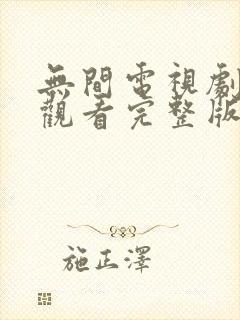 無間電視劇
觀看完整版
施正澤